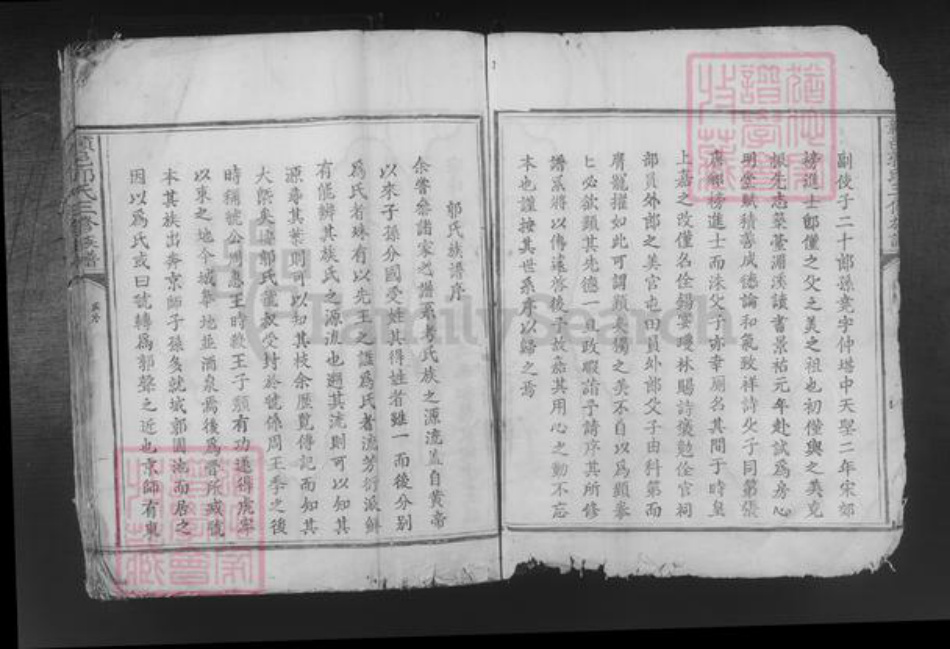 副使子二十郎孫堯字仲堪中天聖二年宋郊
榜進士郎僅之父美之祖也初僅與之美克
振先志築臺湄溪讀書景祐元年赴試為房心
明堂賦積善成德論和氣致祥詩父子同第張
唐卿榜進士而洙父子亦幸廁名其間于時皇
上嘉之改僅名佺錫宴瓊林賜詩獎勉佺官祠
部員外郎之美官屯田員外郎父子由科第而
膺寵擢如此可謂顯矣獨之美不自以為顯
必欲顯其先德一旦政暇謁予請序其所修
譜系將以傳遠啓後予故嘉其用心之勤不忘
本也謹按其世系序以歸之焉
郭氏族譜序
余嘗參諸家之譜系考氏族之源流蓋自黃帝
以來子孫分國受姓其得姓者雖一而後分別
為氏者殊有以先王之諡為氏者流芳衍派鮮
有能辨其族氏之源流也遡其流則可以知其
源尋其葉則可以知其枝余歷覽傳記而知其
大槩矣據郭氏虢叔受封於虢係周王季之後
時稱虢公周惠王時殺王子頹有功遂得虎牢
以東之地今城皋地並酒泉焉後為晉所滅虢
本其族出奔京師子孫多就城郭園池而居之
因以為氏或曰虢轉為郭聲之近也京師有東
郭氏三修族譜
FamilySearch